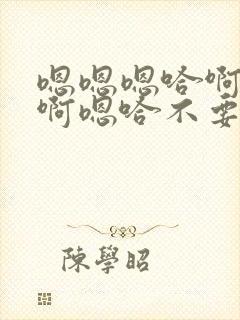 嗯嗯嗯哈啊
啊嗯哈不要
陳學昭